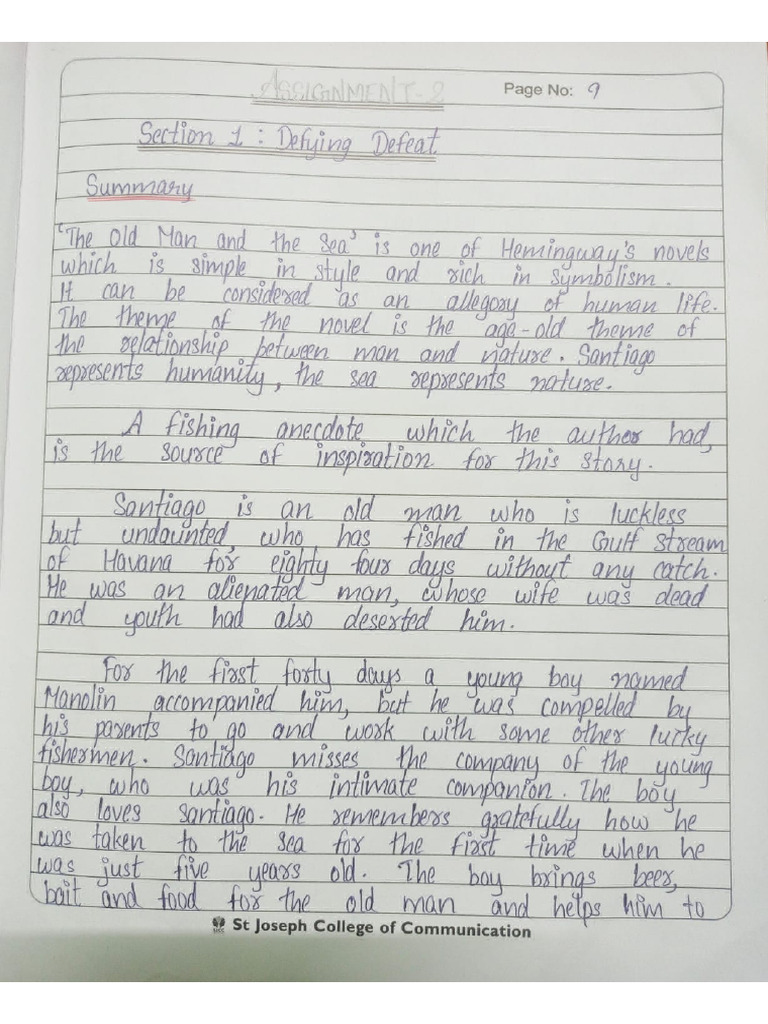 ASSIGNMENT-2
Page No: 9
Section 1 : Defying Defeat
Summary
'The Old Man and the Sea' is one of Hemingway's novels
which is simple in style and rich in symbolism.
It can be considered as an allegory of human life.
The theme of the novel is the age-old theme of
the relationship between man and nature. Santiago
represents humanity, the sea represents nature.
A fishing anecdote which the author had,
is the source of inspiration for this story.
Santiago is an old man who is luckless
but undaunted, who has fished in the Gulf Stream
of Havana for eighty four days without any catch.
He was an alienated man, whose wife was dead
and youth had also deserted him.
For the first forty days a young boy named
Manolin accompanied him, but he was compelled by
his parents to go and work with some other lucky
fishermen. Santiago misses the company of the young
boy, who was his intimate companion. The boy
also loves Santiago. He remembers gratefully how he
was taken to the sea for the first time when he
was just five years old. The boy brings beer,
bait and food for the old man and helps him to
St Joseph College of Communication